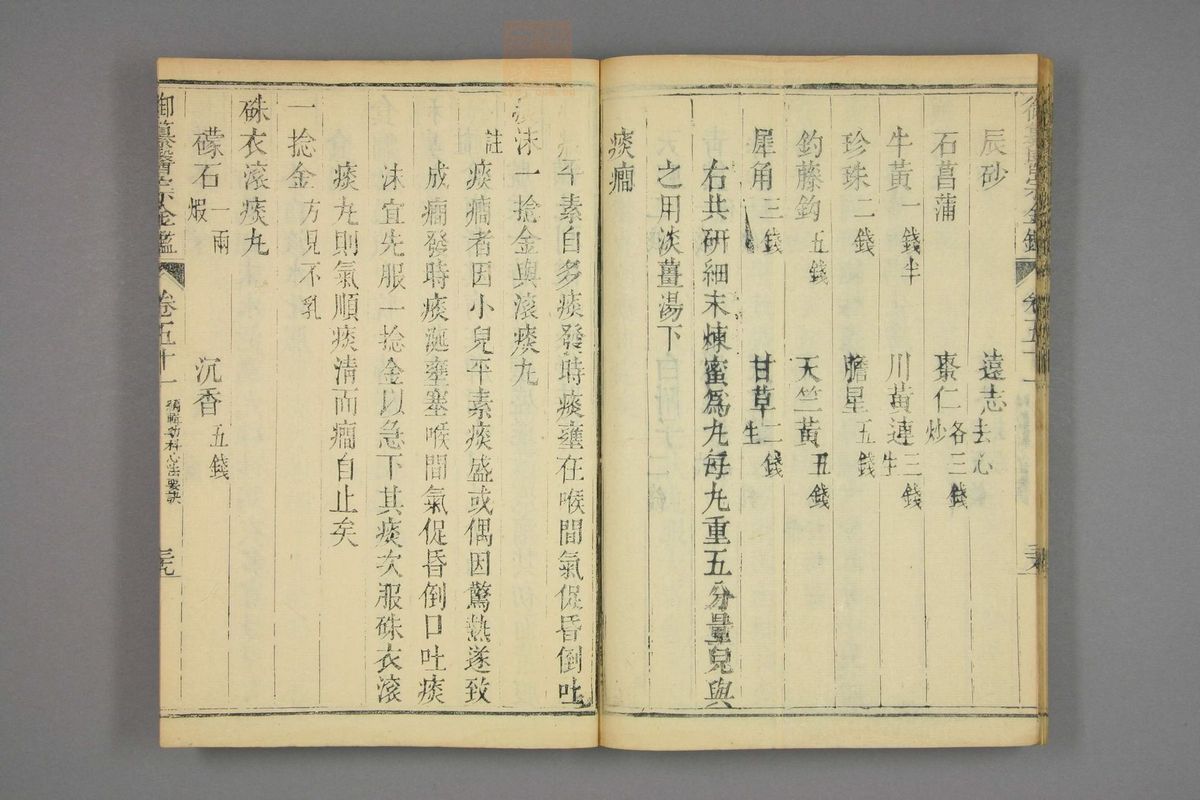 辰砂 遠志去心
石菖蒲 棗仁炒 各三錢
牛黃一錢半 川黃連生 三錢
珍珠二錢 膽星五錢
鈎藤鈎五錢 天竺黃五錢
犀角三錢 甘草生 二錢
右共研細末煉蜜爲丸每丸重五分量兒與
之用淡薑湯下
痰癎
平素自多痰發時痰壅在喉間氣促昏倒吐
沫一捻金與滾痰丸
註 痰癎者因小兒平素痰盛或偶因驚熱遂致
成癎發時痰涎壅塞喉間氣促昏倒口吐痰
沫宜先服一捻金以急下其痰次服硃衣滾
痰丸則氣順痰清而癎自止矣
一捻金方見不乳
硃衣滾痰丸
礞石煆 一兩 沉香五錢
御纂醫宗金鑑 卷五十一 編輯幼科心法要訣 三九